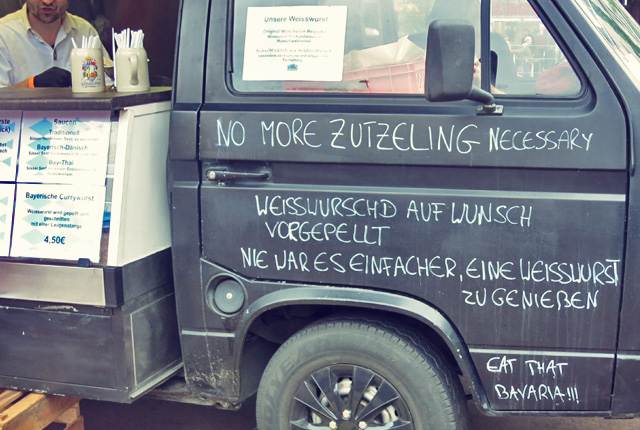 Unsere Weisswurst
NO MORE ZUTZELING NECESSARY
WEISSWURSCHD AUF WUNSCH
VORGEPELLT
NIE WAR ES EINFACHER, EINE WEISSWURST
ZU GENIEßEN
EAT THAT
BAVARIA!!!
Saucen
Traditionell
Bayerisch-Dänisch
Bay-Thai
Bayerische Currywurst
Weisswurst wird gepellt und
geschnitten
mit einer Laugenstange
4,50€